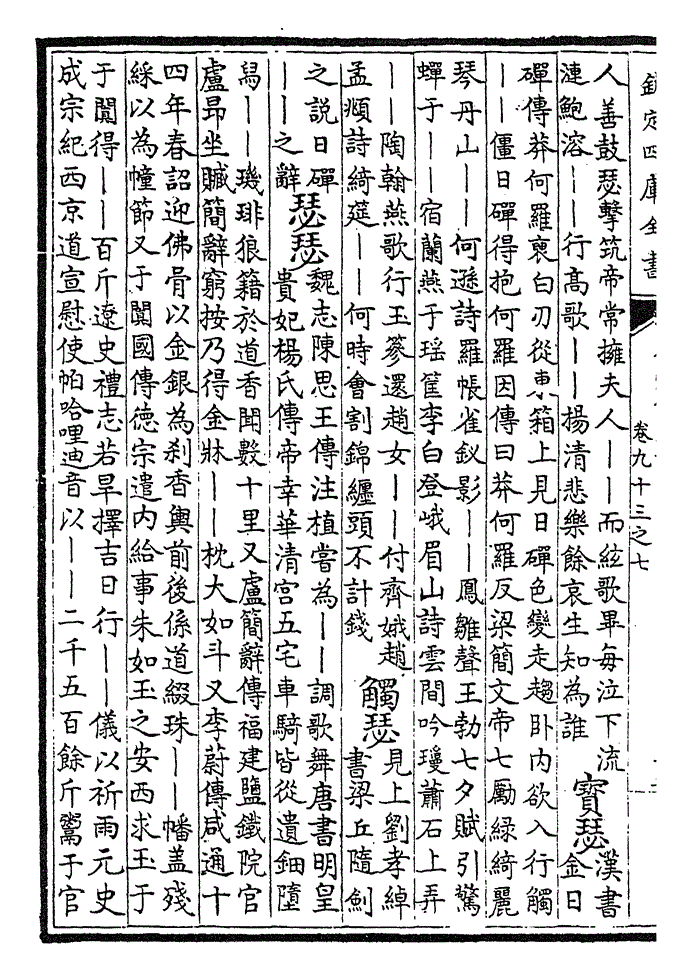 欽定四庫全書
卷九十三之七
人 善鼓瑟擊筑帝常擁夫人——而絃歌畢每泣下流
漣鮑溶——行高歌——揚清悲樂餘哀生知為誰
寶瑟
漢書
金日
磾傳莽何羅褏白刃從東箱上見日磾色變走趨卧内欲入行觸
——僵日磾得抱何羅因傳曰莽何羅反梁簡文帝七勵綠綺麗
琴丹山——何遜詩羅帳雀釵影——鳳雛聲王勃七夕賦引驚
蟬于——宿蘭燕于瑶筐李白登峨眉山詩雲間吟瓊蕭石上弄
——陶翰燕歌行玉篸還趙女——付齊娥趙
孟頫詩綺筵——何時會割錦纏頭不計錢
觸瑟
見上劉孝綽
書梁丘隨劍
之説日磾
——之辭
瑟瑟
魏志陳思王傳注植嘗為——調歌舞唐書明皇
貴妃楊氏傳帝幸華清宫五宅車騎皆從遺鈿墮
舄——璣琲狼籍於道香聞數十里又盧簡辭傳福建鹽鐵院官
盧昂坐贓簡辭窮按乃得金牀——枕大如斗又李蔚傳咸通十
四年春詔迎佛骨以金銀為刹香輿前後係道綴珠——幡蓋殘
綵以為幢節又于闐國傳德宗遣内給事朱如玉之安西求玉于
于闐得——百斤遼史禮志若旱擇吉日行——儀以祈雨元史
成宗紀西京道宣慰使帕哈哩迪音以——二千五百餘斤鬻于官